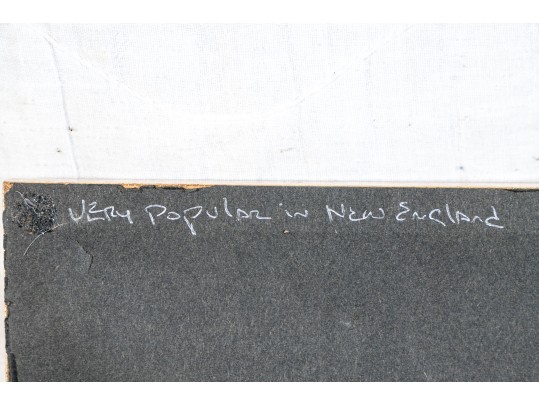 VERY POPULAR in NEW ENGLAND